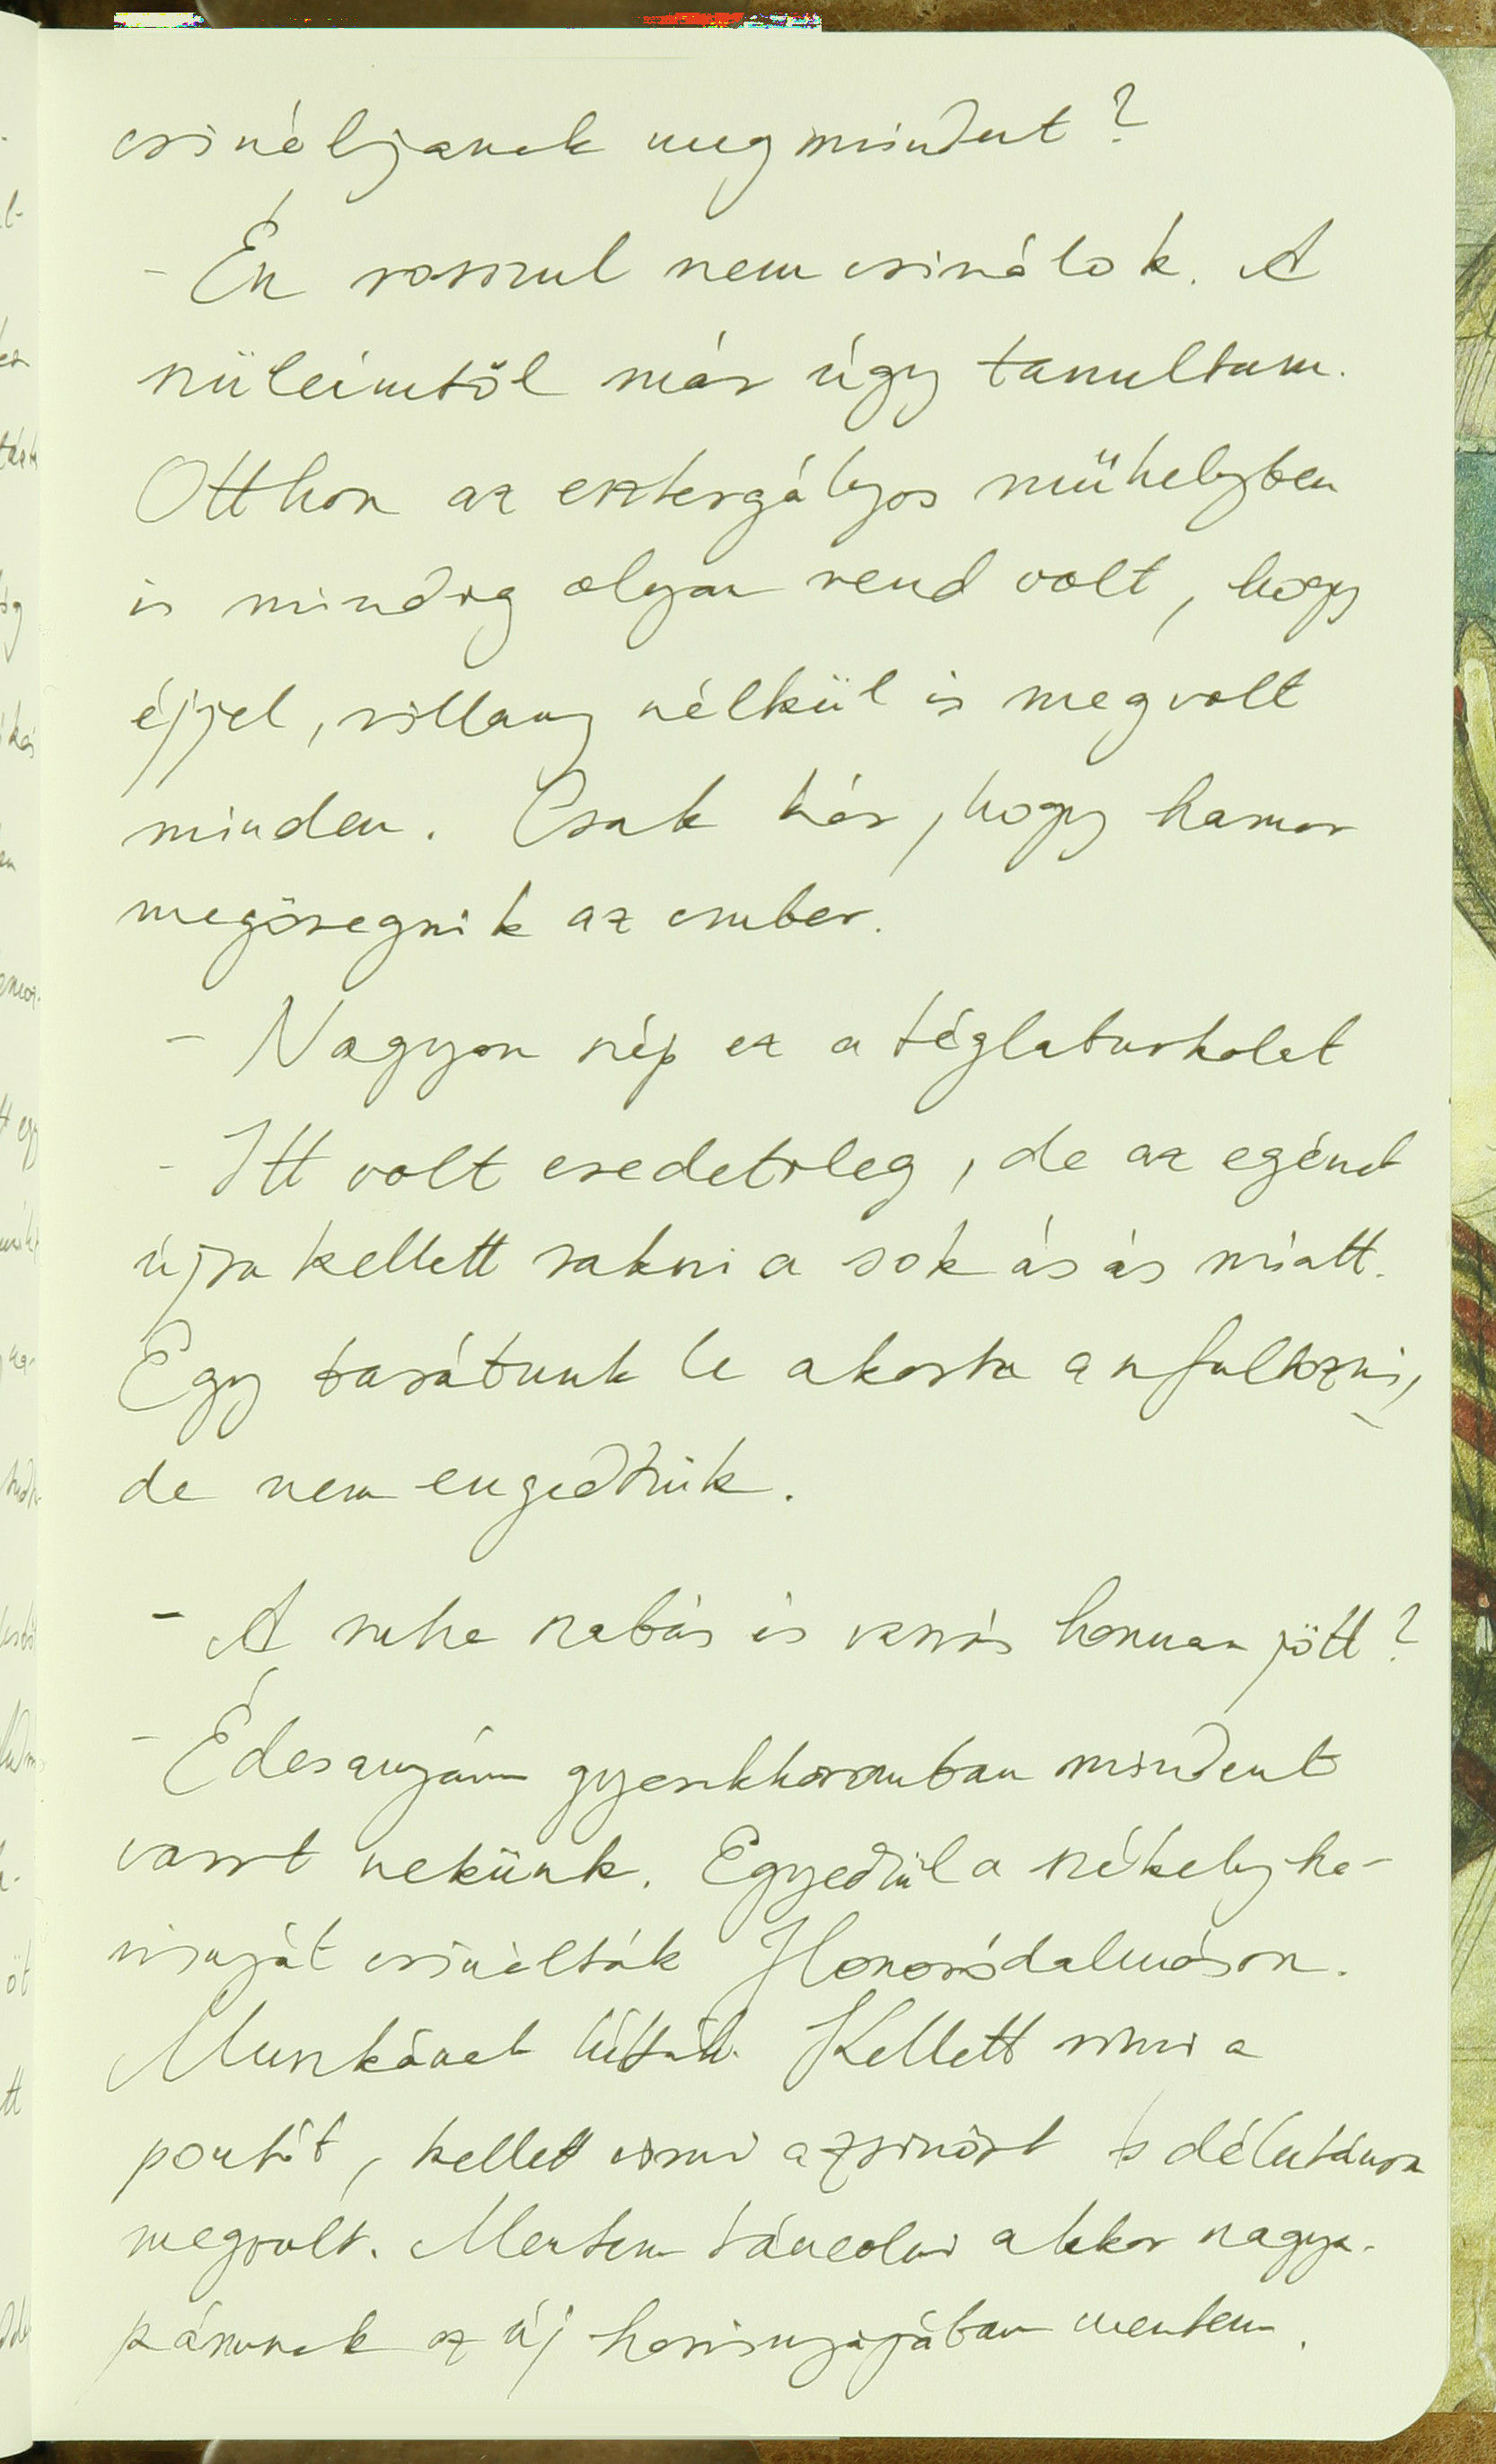 csináljanak meg mindent?
- Én rosszul nem csinálok. A
szüleimtől már úgy tanultam.
Otthon az esztergályos műhelyben
is mindig olyan rend volt, hogy
éjjel, villany nélkül is megvolt
minden. Csak kár, hogy hamar
megöregszik az ember.
- Nagyon szép ez a téglaburkolat
- Itt volt eredetileg, de az egészet
újra kellett rakni a sok ásás miatt.
Egy barátunk le akarta aszfaltozni,
de nem engedtük.
- A ruha szabás és varrás honnan jött?
- Édesanyám gyerekkoromban mindent
varrt nekünk. Egyedül a székely ha-
risnyát csinálták Homoródalmáson.
Munkának hívták. Kellett vinni a
posztót, kellett vinni a zsinórt s délutánra
megvolt. Mentem táncolni akkor nagya-
pámnak az új harisnyájában mentem.